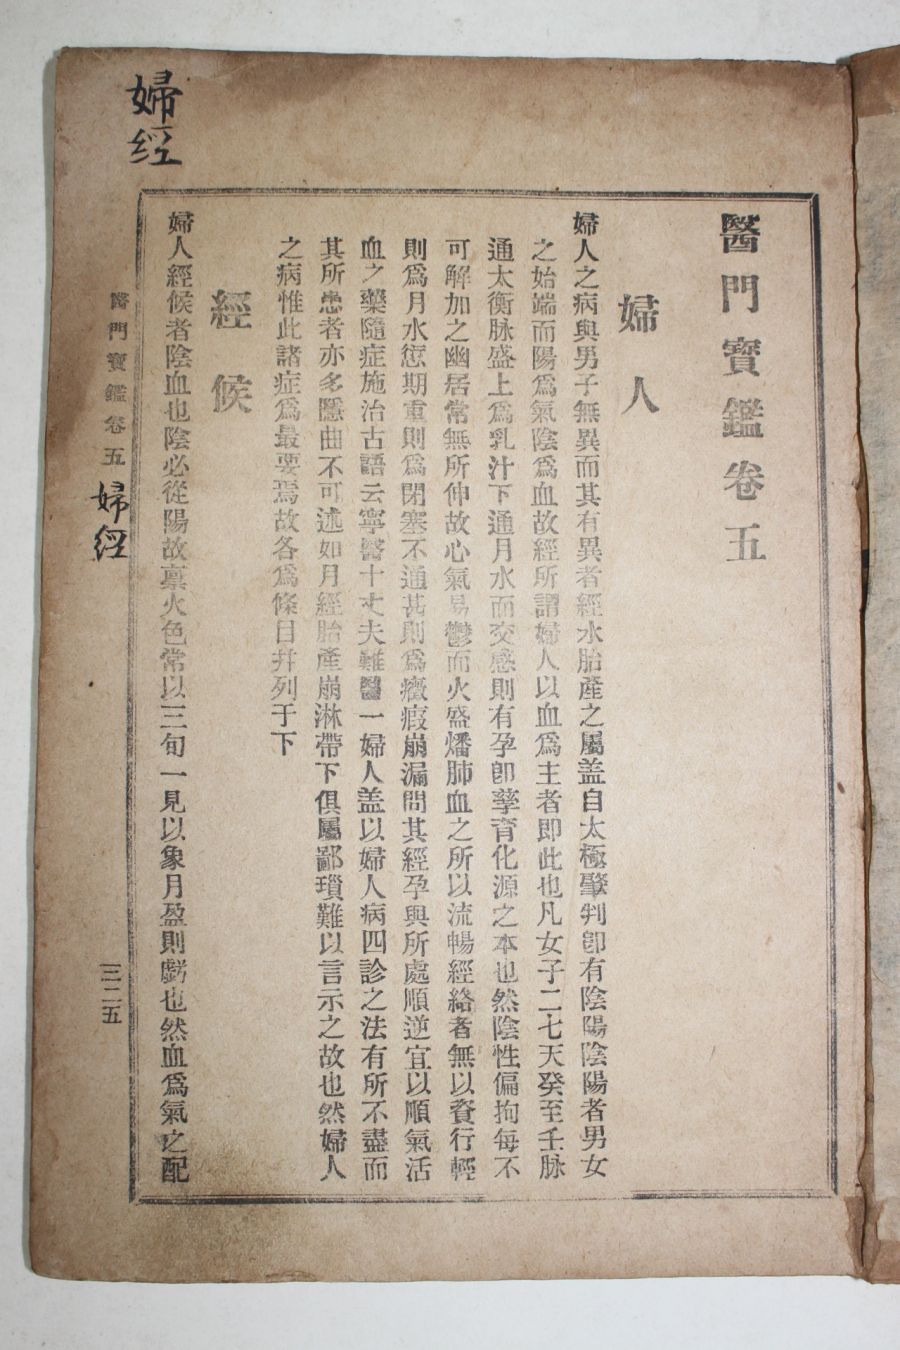 醫門寶鑑卷五
婦人
婦人之病與男子無異而其有異者經水胎產之屬盖自太極肇判卽有陰陽陰陽者男女
之始端而陽爲氣陰爲血故經所謂婦人以血爲主者即此也凡女子二七天癸至壬脉
通太衡脉盛上爲乳汁下通月水而交感則有孕卽孶育化源之本也然陰性偏拘每不
可解加之幽居常無所伸故心氣易鬱而火盛燔肺血之所以流暢經絡者無以資行輕
則爲月水愆期重則爲閉塞不通甚則爲癥瘕崩漏問其經孕與所處順逆宜以順氣活
血之藥隨症施治古語云寧醫十丈夫難醫一婦人盖以婦人病四診之法有所不盡而
其所患者亦多隱曲不可述如月經胎產崩淋帶下俱屬鄙瑣難以言示之故也然婦人
之病惟此諸症爲最要焉故各爲條目并列于下
經候
婦人經候者陰血也陰必從陽故禀火色常以三旬一見以象月盈則虧也然血爲氣之配
醫門寶鑑卷五
婦經
三二五
婦経